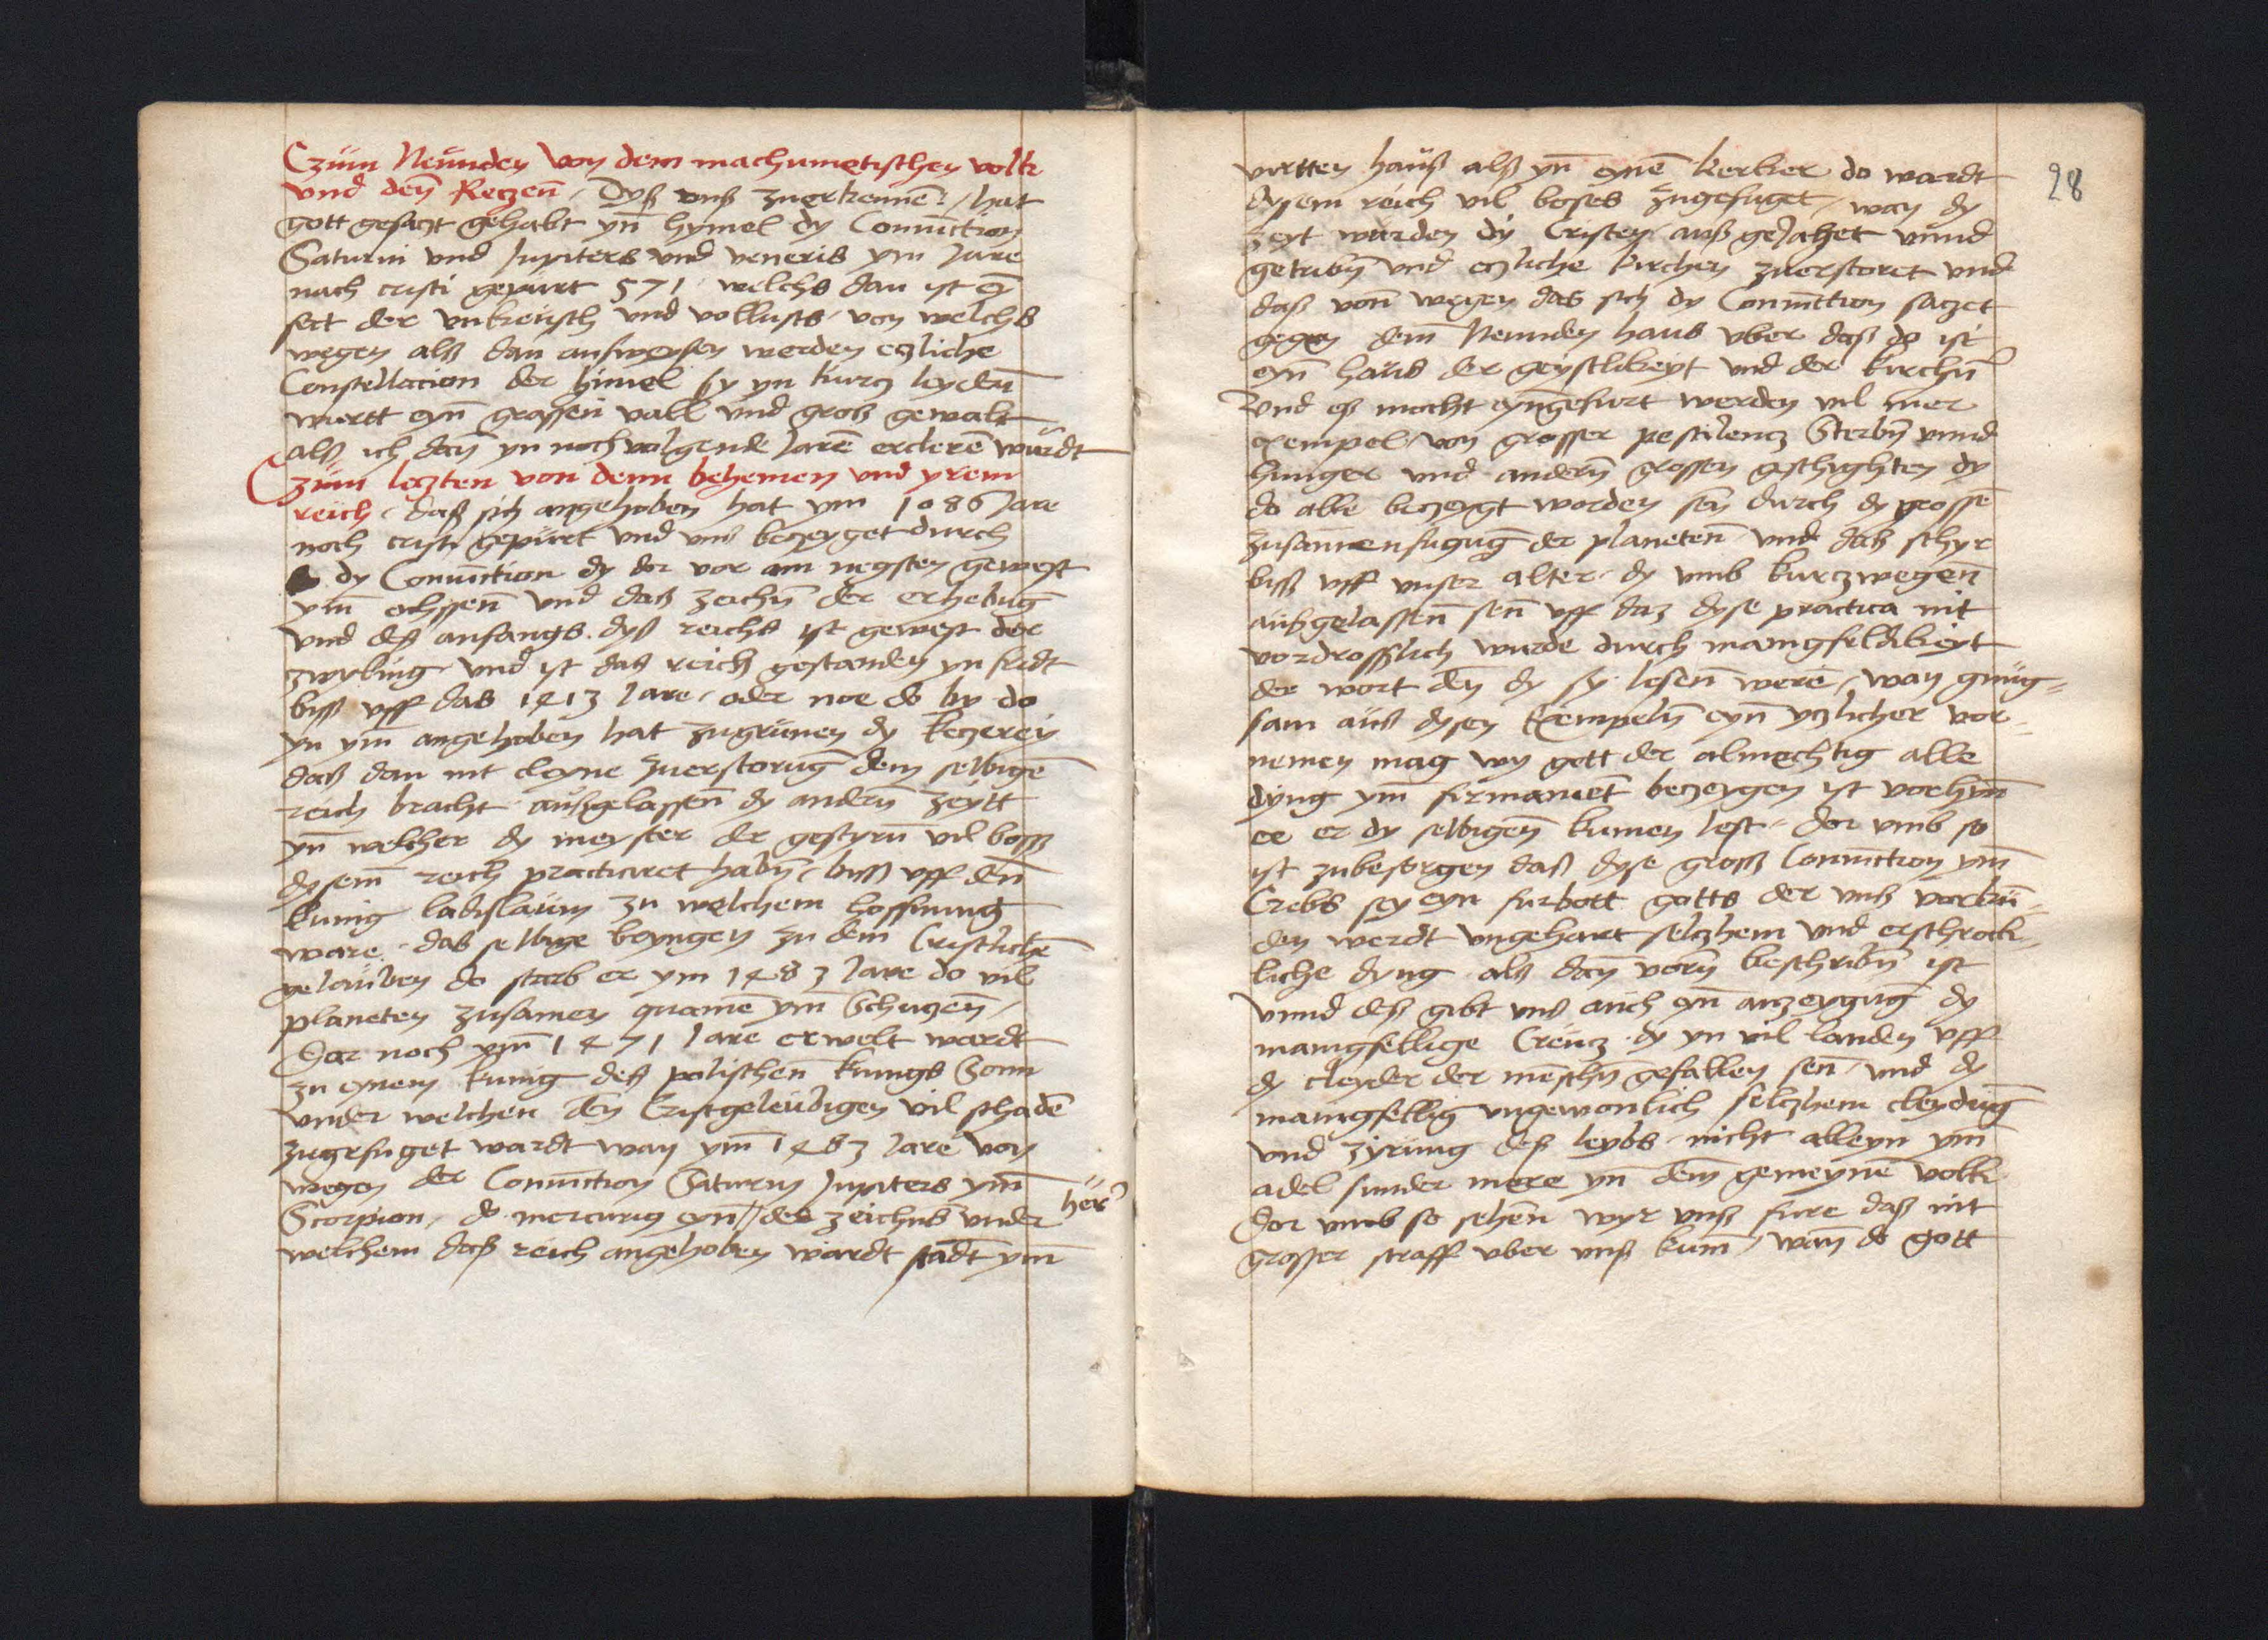 Czům Neůnden von dem machumetischen volk
vnd den̄ Keczen̄, Dyß vnß zuerkennē, hat
gott gesaczt gehabt yn̄ hymel dy Coniūction
Saturni vnd Jupiters vnd veneris ym Jare
nach cristi gepurt 571 welchs dan ist ey̅
sect der vnkeusch vnd vollusts von welchs
wegen alß dan außweysen werden eczliche
Constellacion der himel sy yn kurcz leyden̄
wurtt eyn̄ grossen vall vnd groß gewalt
alß ich dan̄ yn nochvolgende Jarē ercleren̄ wůrdt
Czům leczten von denn behemen vnd yrem
reich, daß sich angehoben hat ym 1086 Jare
noch cristi gepůrt vnd vnß beczeyget durch
dy Coniūction dy dor vor am negsten gewest
ym̄ ochssen̄ vnd daß zeichn̄ der erhebūg
vnd deß anfangs dyß reichs ist gewest der
zwyling vnd ist daß reich gestanden yn fridt
byß vff das 1413 Jare, oder noe do by do
yn ym̄ angehoben hat zugrůnen dy keczerey
daß dan nit cleyne zuerstorūg dem selbigē
reich bracht außgelassen̄ dy andern̄ zeytt
yn̄ welcher dy meyster der gestyrn̄ vil boß
dysem̄ reich practiciret habn̄, biß vff den̄
kunig ladislaům zu welchem hoffnung
ware das selbige brengen zu dem Cristlichē
gelaůben do starb er ym 1483 Jare do vil
planeten zusamen quamē ym̄ Schuczen̄,
Dar noch ym̄ 1471 Jare erwelt wardt
zu eynem kunig deß polischen̄ kunigs Sonn
vnder welchen̄ den Cristgeleůbigen vil schadē
zugefuget wardt wan ym̄ 1483 Jare von
wegen der Coniūction Saturni Jupiters ym̄
Scorpion, do mercurius eyn̄ her̄ des zeichns vnder
welchem daß reich angehoben wardt stādt ym̄
virtten haůß alß yn̄ eynē kerker do wardt
dysem reich vil boses zugefuget, wan dy
zeyt wurden dy Cristen auß geJahet vnnd
getribn̄ vnd eczliche kirchen zuerstoret vnd
daß von̄ wegen das sich dy Coniūction saczet
gegen dem̄ Neunden haus vber daß do ist
eyn̄ haůs der geystlikeyt vnd der kirchn̄
Vnd eß mocht eyngefurt werden vil mer
exempel, von grosser pestilencz Sterbn̄ vnnd
hunger vnd andern̄ grossen geschyghten dy
do alle beczeygt worden sen̄ durch dy grossē
zusammenfugūg der planeten̄ vnd daß schyr
biß vff vnser alter, dy vmb kurczwegen̄
außgelassen̄ sen̄ vff daz dyse practica nit
vordroßlich wurde durch manigfeldikeyt
der wort den̄ dy sy lesen̄ werē, wan gnůg-
sam auß dysen Exempeln̄ eyn̄ yczlicher vor-
nemen mag wy gott der almechtig alle
dyng ym̄ firmamēt beczeygen ist vorhyn̄
ee er dy selbigen̄ kumen lest, dor vmb so
ist zubesorgen daß dyse groß Coniūction ym̄
Crebs sey eyn furbott gotts der vnß vorkū-
den werdt vngehort selczhem vnd erschrock-
liche dyng alß dan̄ vorn̄ beschribn̄ ist
vnnd deß gibt vnß auch eyn̄ anzeygūg dy
manigfellige Creucz dy yn vil landen vff
dy cleyder der menschn̄ gefallen sen̄ vnd dy
manigfellig vngewonlich selczhem cleydūg
vnd zyrung deß leybs nicht alleyn ym̄
adel sunder mere yn̄ dem̄ gemeynē volk
Dor vmb so sehen̄ wyr vnß fure daß nit
grosser straff vber vnß kum̄, wan̄ do gott
28